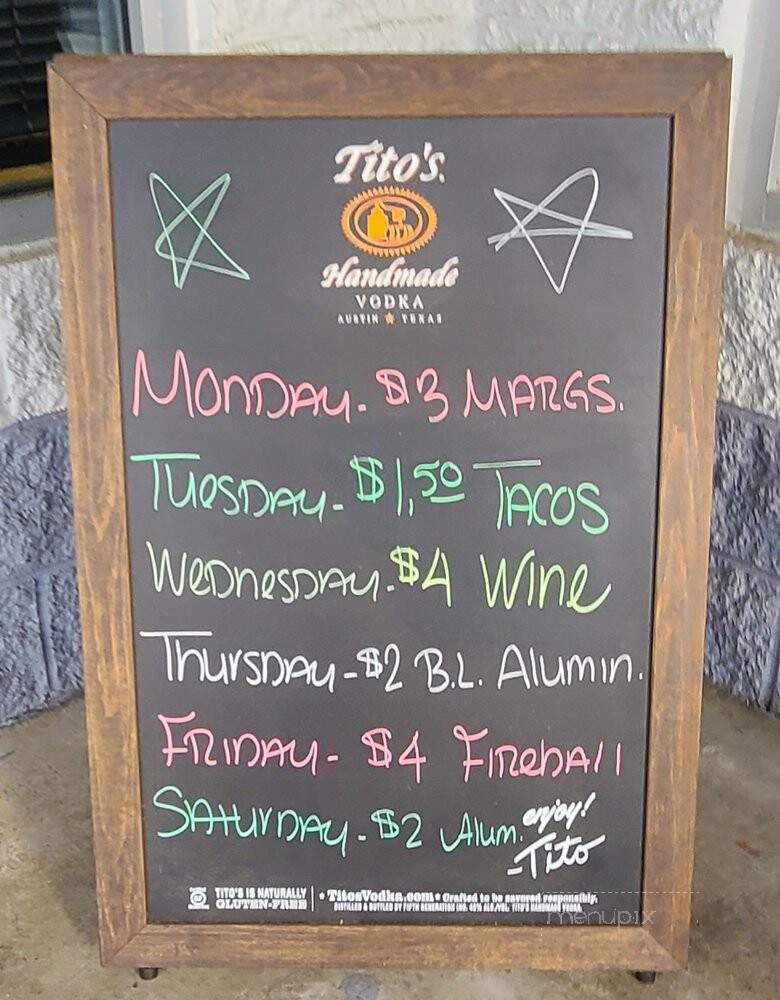 Tito's
Handmade
VODKA
AUSTIN TEXAS
MONDAY- $3 MARGS.
TUESDAY- $1,50 TACOS
WEDNESDAY- $4 WINE
THURSDAY- $2 B.L. ALUMIN.
FRIDAY- $4 FIREBALL
SATURDAY- $2 ALUM.
enjoy!
-Tito
TITO'S IS NATURALLY
GLUTEN-FREE
* TitosVodka.com * Crafted to be savored responsibly.
DISTILLED & BOTTLED BY FIFTH GENERATION INC. 40% ALC./VOL. TITO'S HANDMADE VODKA.
menupix